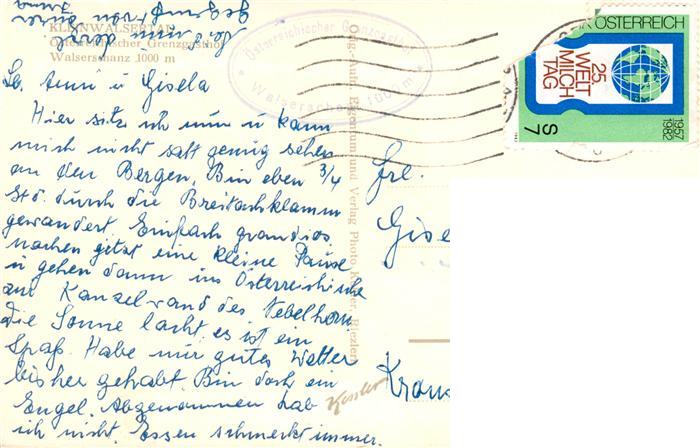 KLEINWALSERTAL
Österreichischer Grenzgasthof
Walserschanz 1000 m
Österreichischer Grenzgasthof
Walserschanz 1000 m
Lb. Anni u Gisela
Hier sitz ich nun u kann
mich nicht satt genug sehen
an den Bergen. Bin eben 3/4
Std. durch die Breitachklamm
gewandert. Einfach grandios.
machen jetzt eine kleine Pause
u gehen dann ins Österreichische
zur Kanzelwand des Nebelhorn.
Die Sonne lacht, es ist ein
Spaß. Habe nur gutes Wetter
bis her gehabt. Bin doch ein
Engel. Abgenommen hab
ich nicht. Essen schmeckt immer.
Orig.-Aufn. Eigentum und Verlag Photo Riezlern
Frl.
Gise
Kessler
ÖSTERREICH
25
WELT
MILCH
TAG
1957
1982
S 7